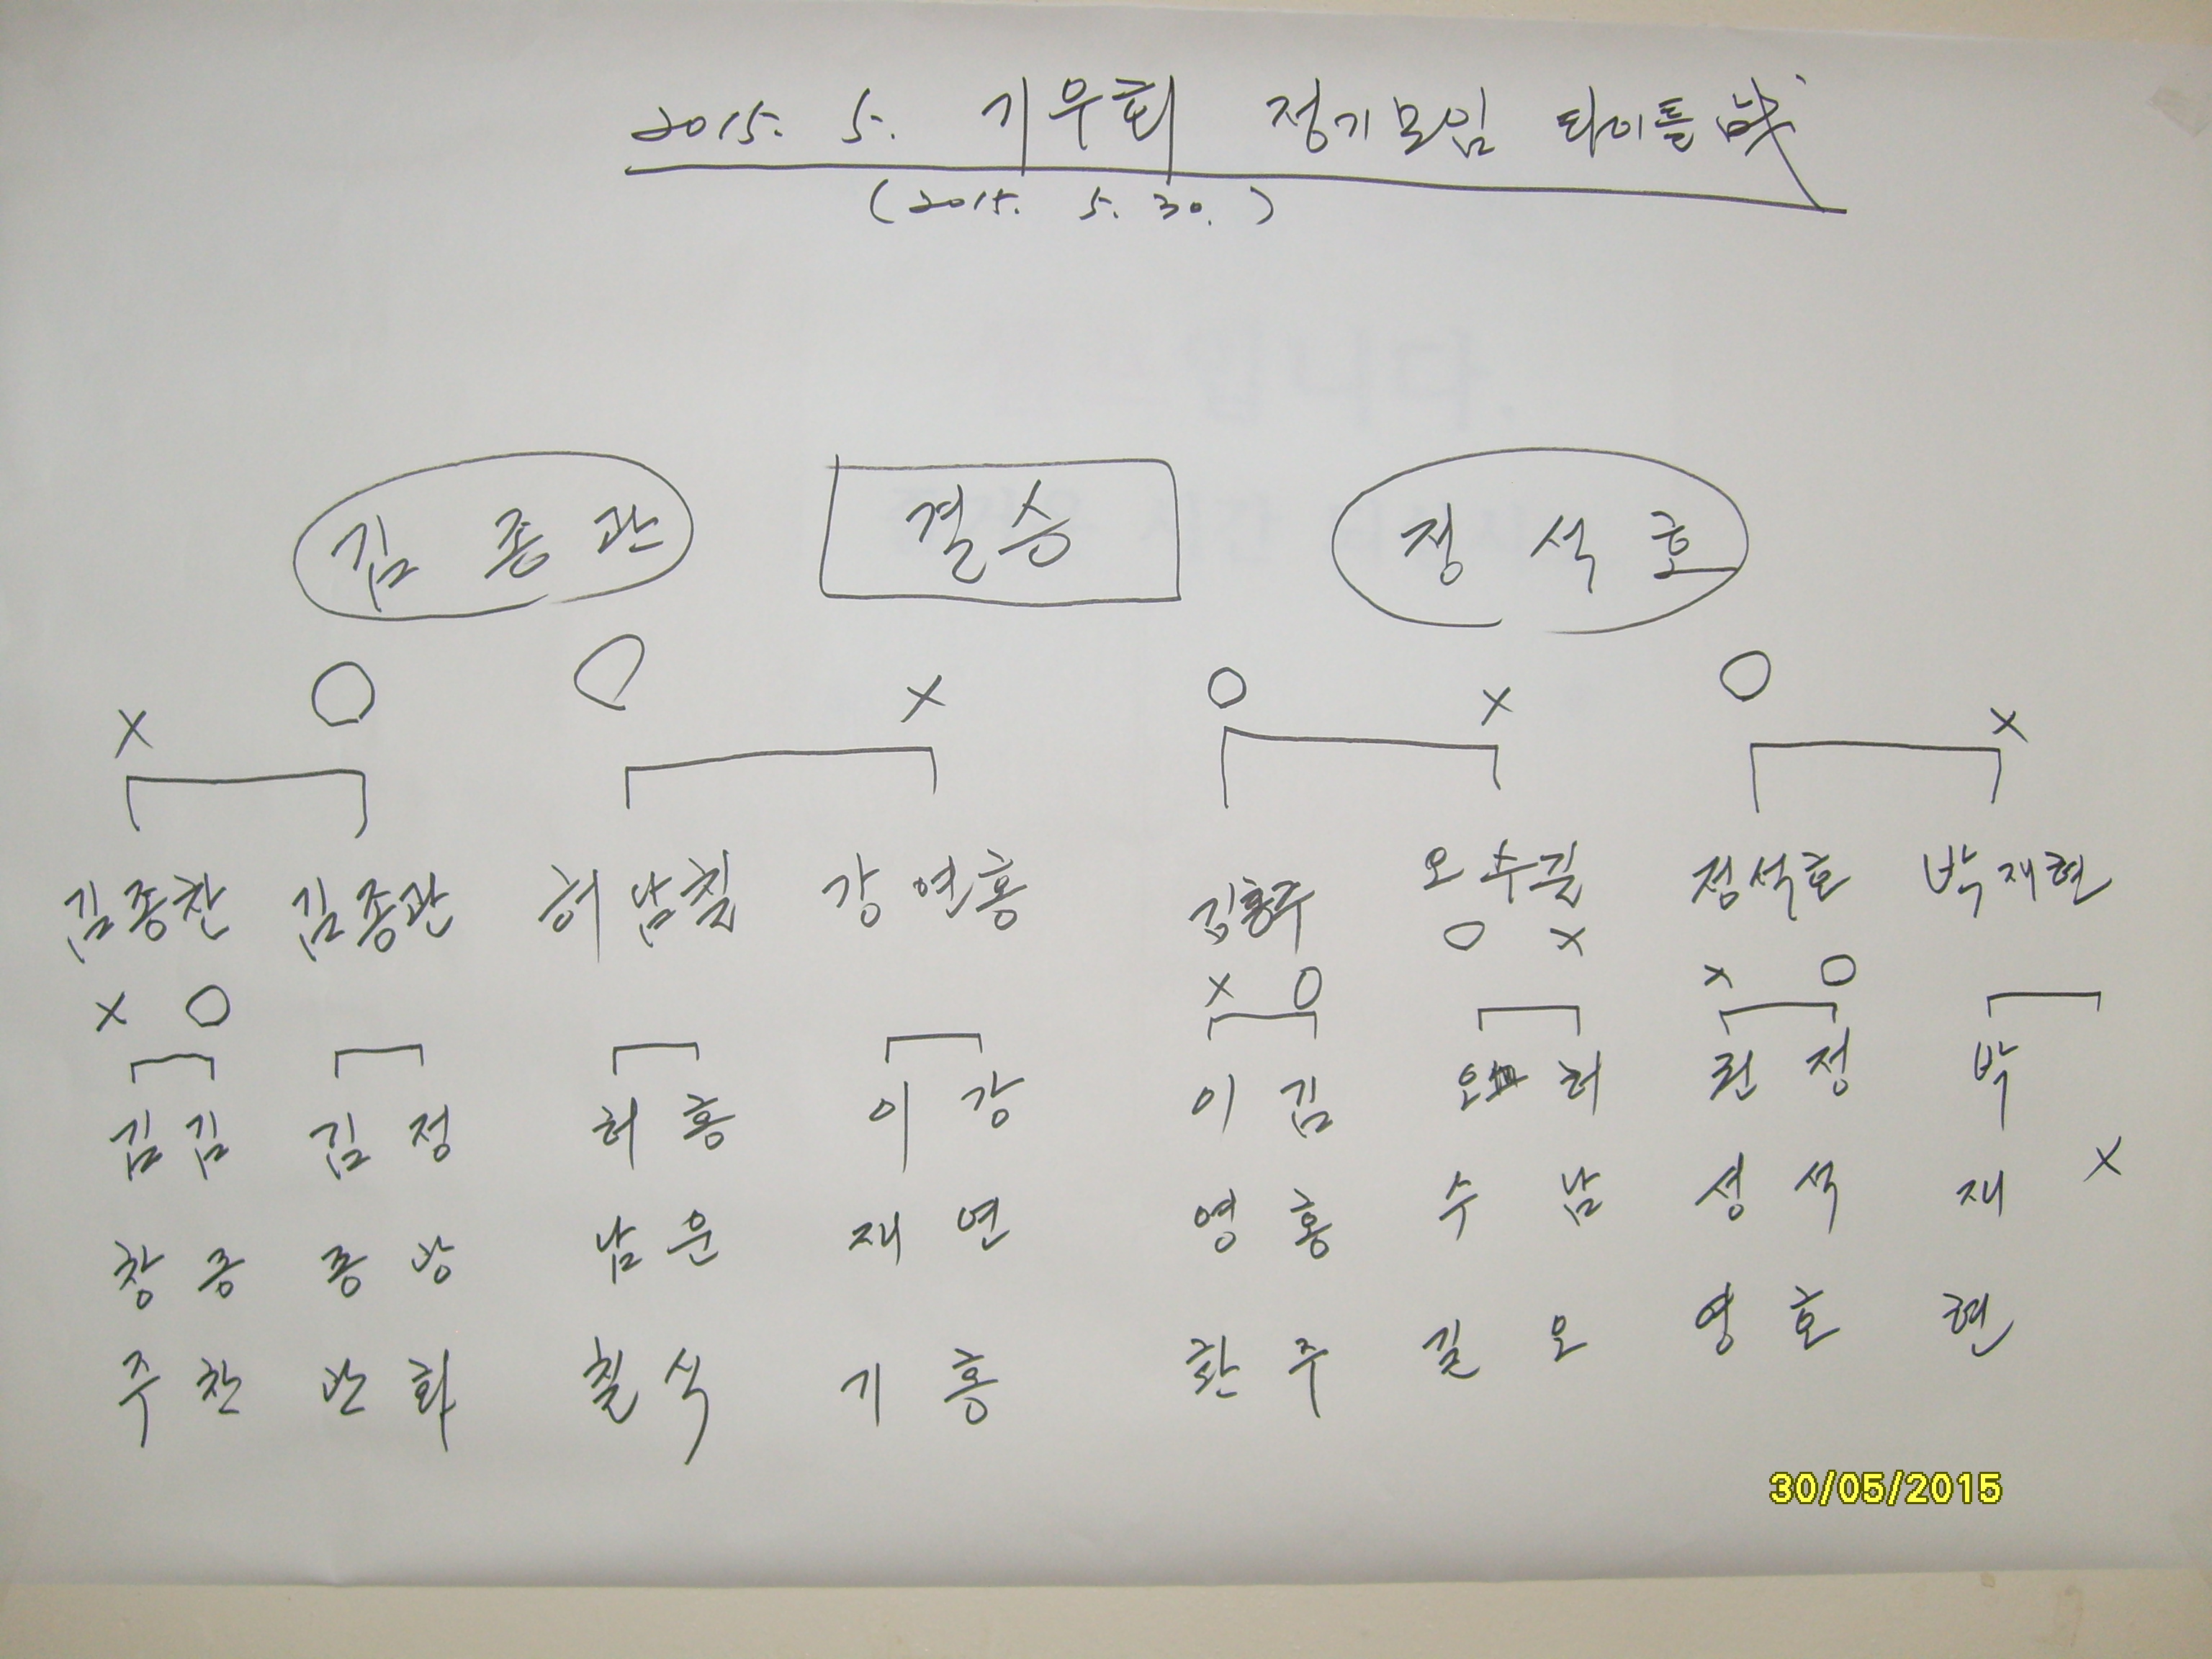 2015. 5. 기우회 정기모임 타이틀戰
(2015. 5. 30.)
입니다.
김종관 결승 정석호
X O O X O X O X
김종찬 김종관 허남칠 강연홍 김홍주 오수길 정석호 박재현
X O X O O X X O
김 김 김 정 허 홍 이 강 이 김 오 허 권 정 박
창 종 종 남 운 재 연 영 홍 수 남 성 석 재 X
주 찬 관 화 칠 식 기 홍 환 주 길 오 영 호 현
30/05/2015